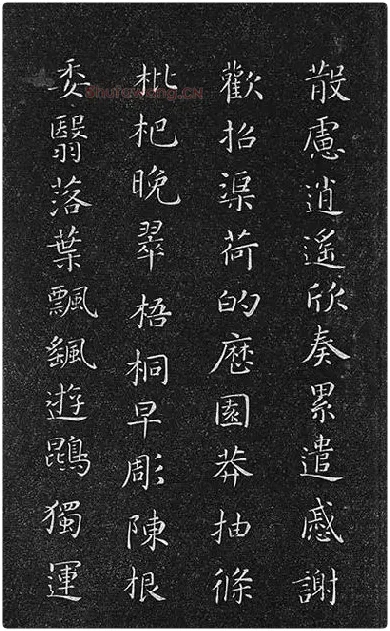 散慮逍遙欣奏累遣慼謝
歡招渠荷的歷園莽抽條
枇杷晚翠梧桐早彫陳根
委翳落葉飄颻遊鵾獨運
shufawang.CN